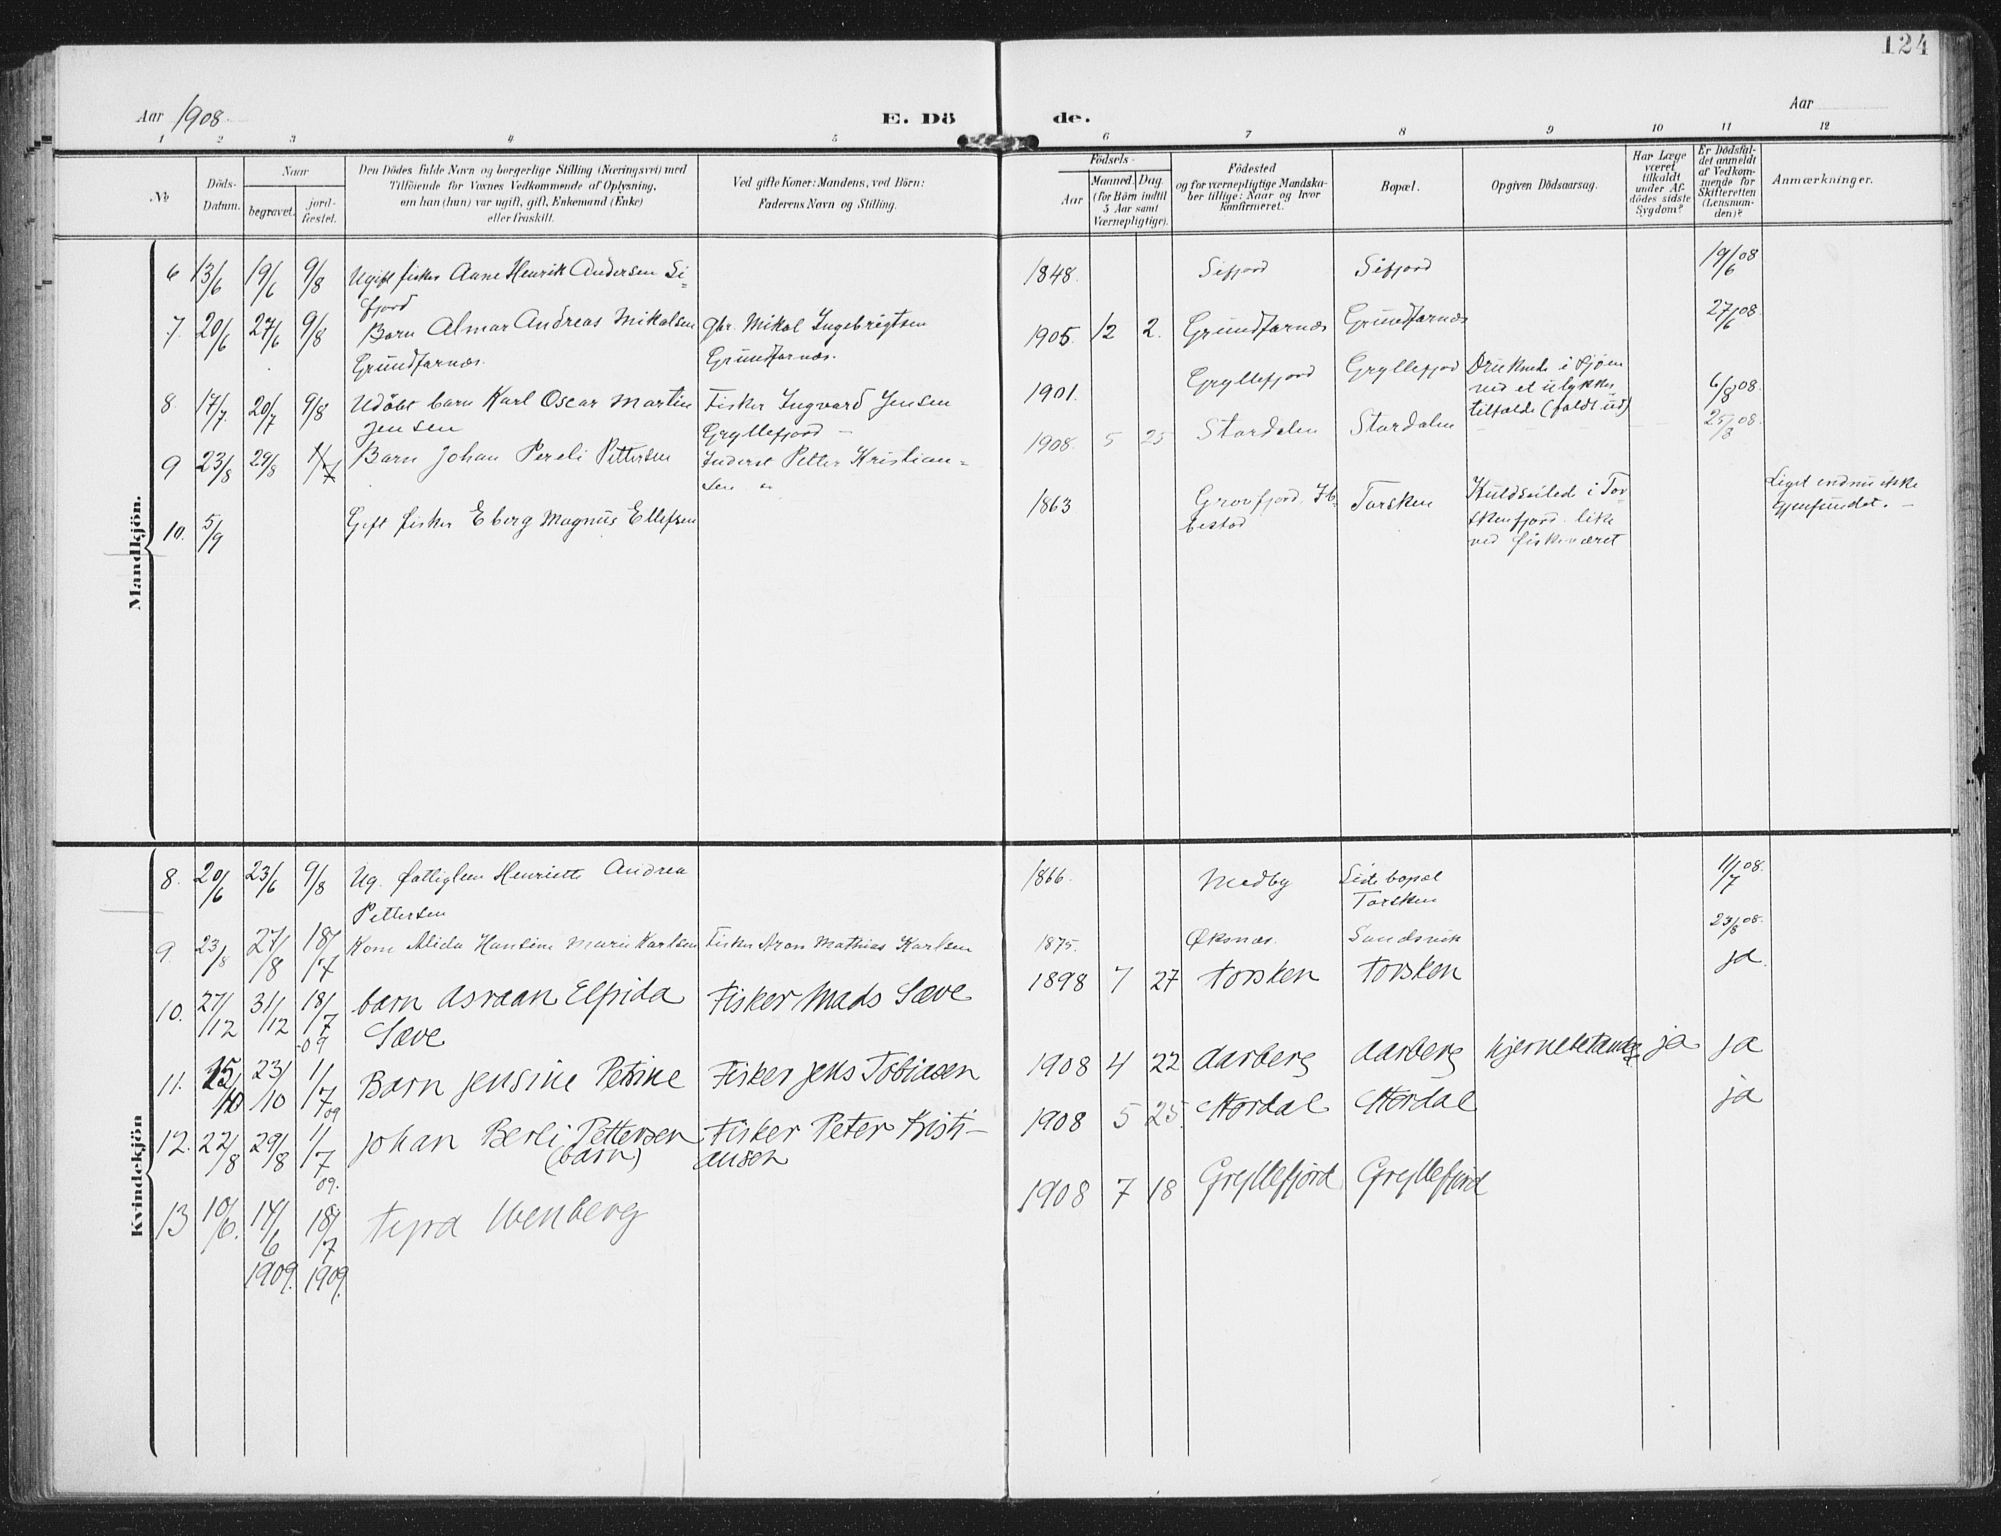 124
Aar 1908.
E. Dö
de.
Aar
1 2 3 4 5 6 7 8 9 10 11 12
No
Döds-
Datum.
Naar
begravet.
jord-
fæstet.
Den Dödes fulde Navn og borgerlige Stilling (Næringsvei) med
Tilföiende for Voxnes Vedkommende af Oplysning,
om han (hun) var ugift, gift, Enkemand (Enke)
eller fraskilt.
Ved gifte Koner: Mandens, ved Börn:
Faderens Navn og Stilling.
Födsels-
Aar
Maaned. Dag.
(for Börn indtil
5 Aar samt
Værnepligtige).
Födested
og for værnepligtige Mandska-
ber tillige: Naar og hvor
konfirmeret.
Bopæl.
Opgiven Dödsaarsag.
Har Læge
været
tilkaldt
under Af-
dödes sidste
Sygdom?
Er Dödsfal-
det anmeldt
af Vedkom-
mende for
Skifteretten
(Lensman-
den)?
Anmærkninger.
Mandkjön.
6 13/6 19/6 9/8 Ugift fisker Aane Henrik Andersen Si- 1848. Sifjord Sifjord 19/6 08
fjord
7. 20/6 27/6 9/8 Barn Almar Andreas Mikalsen Gbr. Mikal Ingebrigtsen 1905 12 2. Grundfarnæs Grundfarnæs 27/6 08.
Grundfarnæs. Grundfarnæs.
8. 17/7. 20/7 9/8 Udöbt barn Karl Oscar Martin Fisker Ingvard Jensen 1901. Gryllefjord Gryllefjord Druknede i Sjöen 6/8 08.
Jensen Gryllefjord - ved et ulykkes
tilfælde (faldt ud)
9 23/8 29/8 1/7 Barn Johan Pereli Pettersen Inderst Petter Kristian= 1908. 5 25 Stordalen Stordalen 25/8 08.
sen
10. 5/9 Gift fisker Eberg Magnus Ellefsen 1863 Grovfjord, Ib- Torsken Kuldseiled i Tor- Liget endnu ikke
bestad skenfjord like gjenfundet. -
ved fiskeværet
Kvindekjön
8. 20/6 23/6 9/8 Ug. fattiglem Henriette Andrea 1866. Medby Sidste bopæl 11/7 08.
Pettersen Torsken
9. 23/8 27/8 18/7 Kone Alida Hansine Marie Karlsen Fisker Aron Mathias Karlsen 1875. Øksnæs. Sandsvik 23/8 08.
10. 27/12 31/12 18/7 09 barn Asraan Elfrida Fisker Mads Sæve 1898 7 27 Torsken Torsken ja.
Sæve
11. 15/10 23/10 1/7 09 Barn Jensine Petrine Fisker Jens Tobiasen 1908 4 22 Aarberg Aarberg hjernebetændg ja ja
12. 22/8 29/8 1/7 09. Johan Berli Pettersen Fisker Peter Kristi- 1908 5 25. Stordal Stordal ja
(barn) ansen
13 10/6. 14/6 1909. 18/7 1909. Tyra Wenberg 1908 7 18 Gryllefjord Gryllefjord